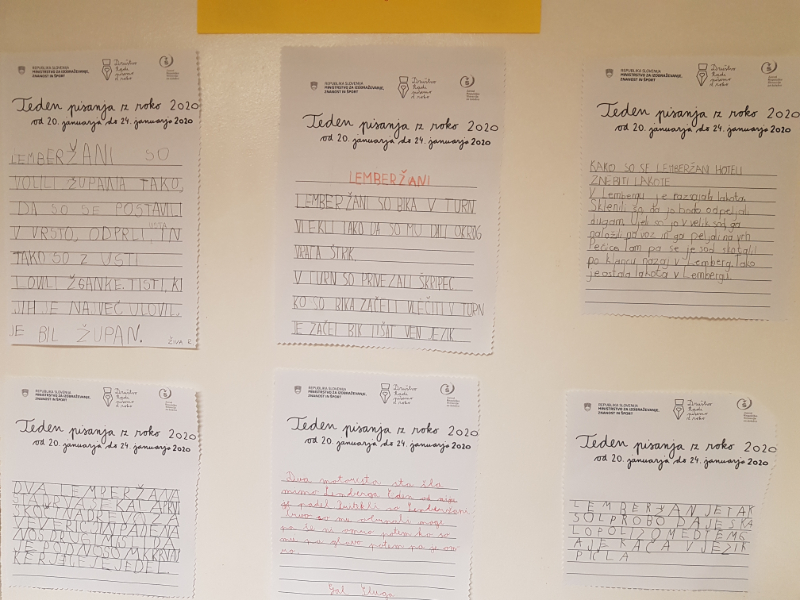 REPUBLIKA SLOVENIJA
MINISTRSTVO ZA IZOBRAŽEVANJE,
ZNANOST IN ŠPORT
Društvo
Radi
pišemo
z roko
Teden pisanja z roko 2020
od 20. januarja do 24. januarja 2020
LEMBERŽANI SO
VOLILI ŽUPANA TAKO,
DA SO SE POSTAVILI
V VRSTO, ODPRLI USTA IN
TAKO SO Z USTI
LOVILI ŽGANKE. TISTI, KI
JIH JE NAJVEČ ULOVIL
JE BIL ŽUPAN.
ŽIVA K
REPUBLIKA SLOVENIJA
MINISTRSTVO ZA IZOBRAŽEVANJE,
ZNANOST IN ŠPORT
Društvo
Radi
pišemo
z roko
Teden pisanja z roko 2020
od 20. januarja do 24. januarja 2020
LEMBERŽANI
LEMBERŽANI SO BIKA V TURN
VLEKLI TAKO DA SO MU DALI OKROG
VRATA ŠTRIK.
V TURN SO PRIVEZALI ŠKRIPEC
KO SO BIKA ZAČELI VLEČITI V TURN
JE ZAČEL BIK TIŠAT VEN JEZIK
REPUBLIKA SLOVENIJA
MINISTRSTVO ZA IZOBRAŽEVANJE,
ZNANOST IN ŠPORT
Društvo
Radi
pišemo
z roko
Teden pisanja z roko 2020
od 20. januarja do 24. januarja 2020
KAKO SO SE LEMBERŽANI HOTELI
ZNEBITI LAKOTE
V Lembergu je razsajala lakota.
Sklenili so da jo bodo odpeljali
drugam. Ujeli so jo v velik sod ga
naložili na voz in ga peljali na vrh
Pečice tam pa se je sod skotalil
po klancu nazaj v Lemberg. Tako
je ostala lakota v Lembergu.
REPUBLIKA SLOVENIJA
MINISTRSTVO ZA IZOBRAŽEVANJE,
ZNANOST IN ŠPORT
Društvo
Radi
pišemo
z roko
Teden pisanja z roko 2020
od 20. januarja do 24. januarja 2020
DVA LEMBERŽANA
VEVERICIN PADE NA
NOS DRUGI MISLI DA
KER JIH JE JEDEL
REPUBLIKA SLOVENIJA
MINISTRSTVO ZA IZOBRAŽEVANJE,
ZNANOST IN ŠPORT
Društvo
Radi
pišemo
z roko
Teden pisanja z roko 2020
od 20. januarja do 24. januarja 2020
Dva motorista sta šla
mimo Lemberga Eden od
je padel so Lemberžani
so mu
pa glavo potem pa je
Gal
REPUBLIKA SLOVENIJA
MINISTRSTVO ZA IZOBRAŽEVANJE,
ZNANOST IN ŠPORT
Društvo
Radi
pišemo
z roko
Teden pisanja z roko 2020
od 20. januarja do 24. januarja 2020
LEMBERŽAN JE TAK
SOL PROBO DA JE ŠKA
LO POLIZO MED TEMG
A JE KAČA V JEZIK
PIČLA